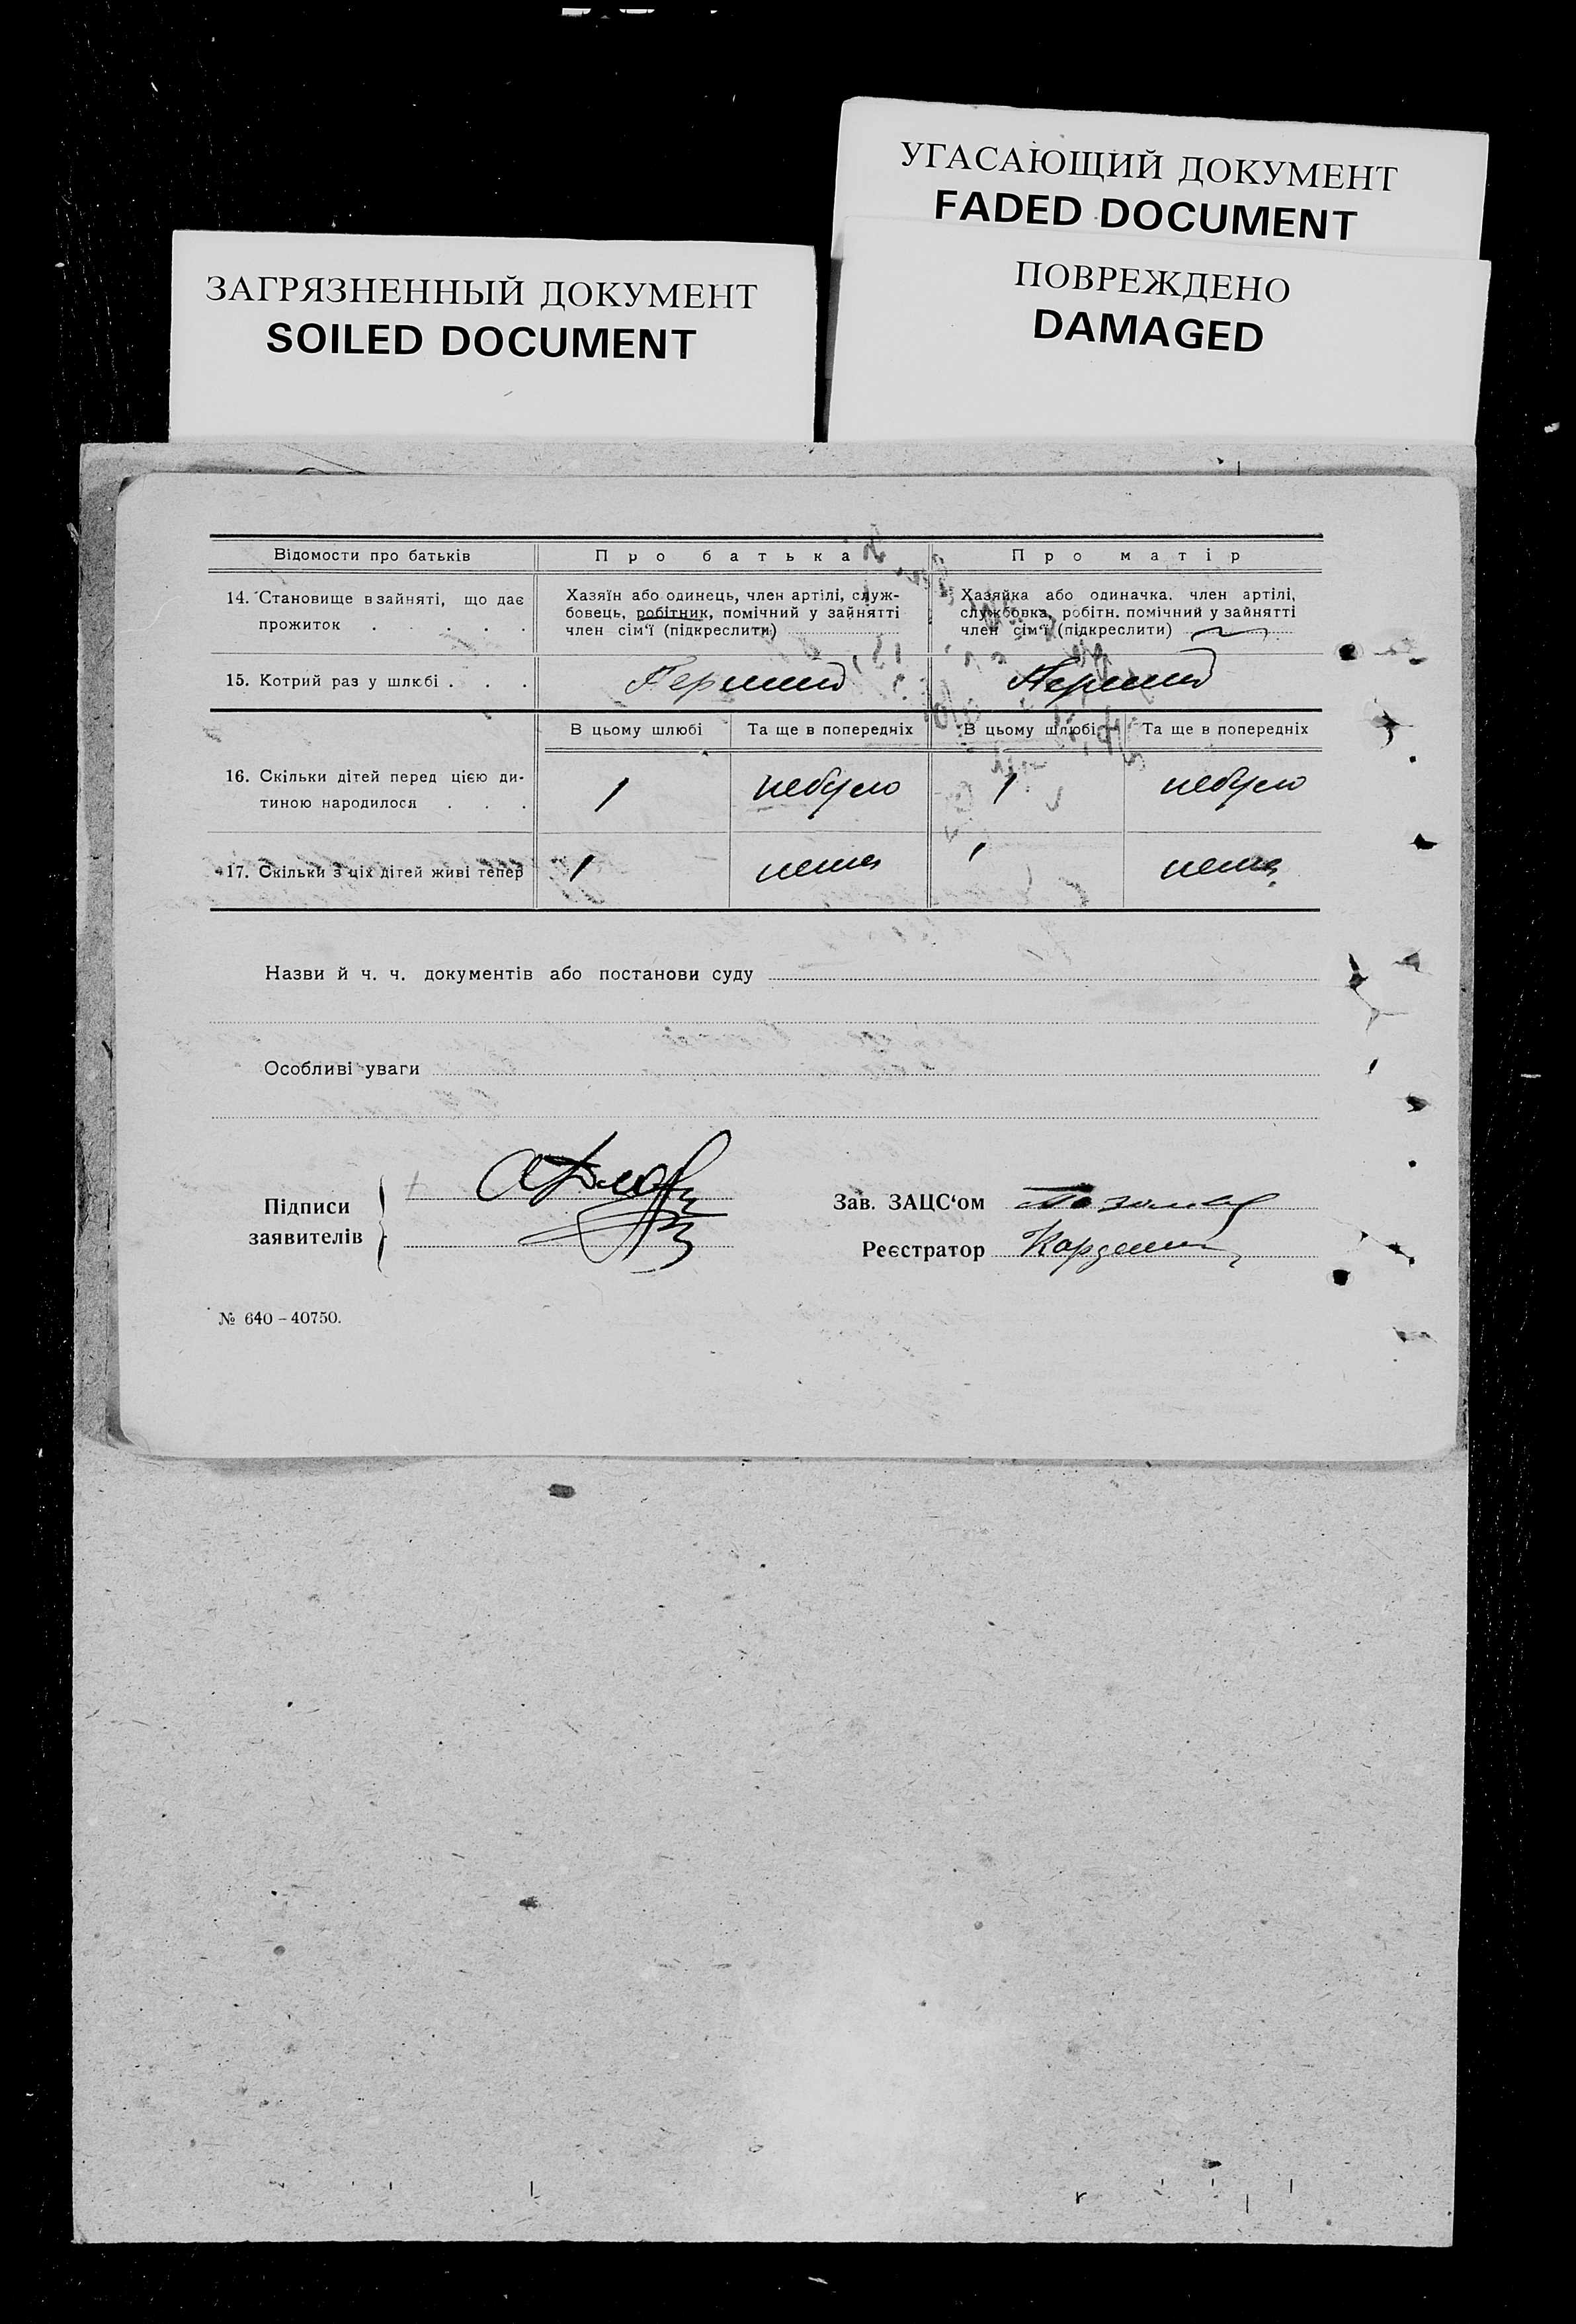 УГАСАЮЩИЙ ДОКУМЕНТ
FADED DOCUMENT
ЗАГРЯЗНЕННЫЙ ДОКУМЕНТ
SOILED DOCUMENT
ПОВРЕЖДЕНО
DAMAGED
Відомости про батьків Про батька Про матір
14. Становище в зайняті, що дає прожиток . . . . .
Хазяїн або одинець, член артілі, служ-
бовець, робітник, помічний у зайнятті
член сім'ї (підкреслити)
Хазяйка або одиначка. член артілі,
службовка, робітн. помічний у зайнятті
член сім'ї (підкреслити)
15. Котрий раз у шлюбі . . . Перший Перший
В цьому шлюбі Та ще в попередніх В цьому шлюбі Та ще в попередніх
16. Скільки дітей перед цією ди-
тиною народилося . . . 1 небуло 1 небуло
17. Скільки з ціх дітей живі тепер 1 нема 1 нема
Назви й ч. ч. документів або постанови суду
Особливі уваги
Підписи
заявителів
Зав. ЗАЦС'ом
Реєстратор
№ 640 – 40750.